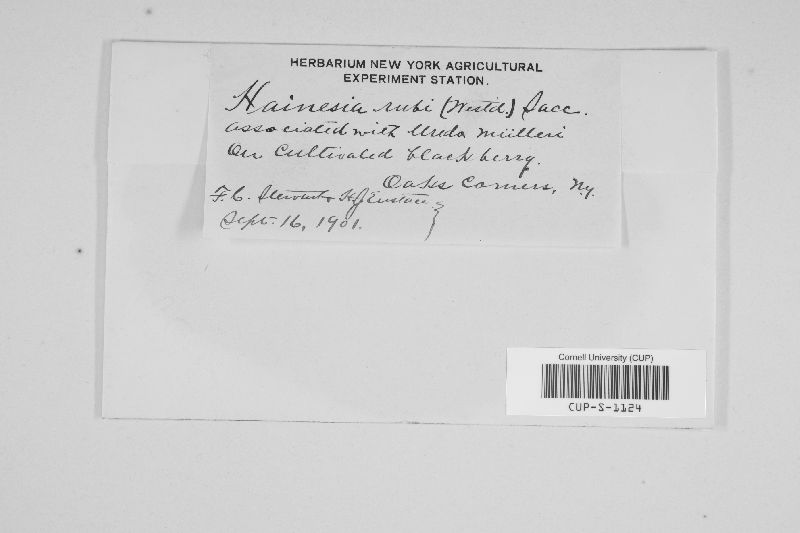 HERBARIUM NEW YORK AGRICULTURAL
EXPERIMENT STATION.
Hainesia rubi (Westd.) Sacc.
associated with Uredo mülleri
On cultivated blackberry.
Oaks Corners, N.Y.
F. C. Stewart & H. J. Eustace
Sept. 16, 1901.
Cornell University (CUP)
CUP-S-1124